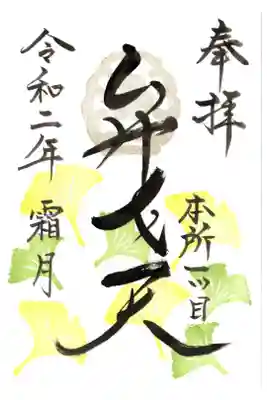 奉拝
本所一ツ目
弁才天
令和二年 霜月